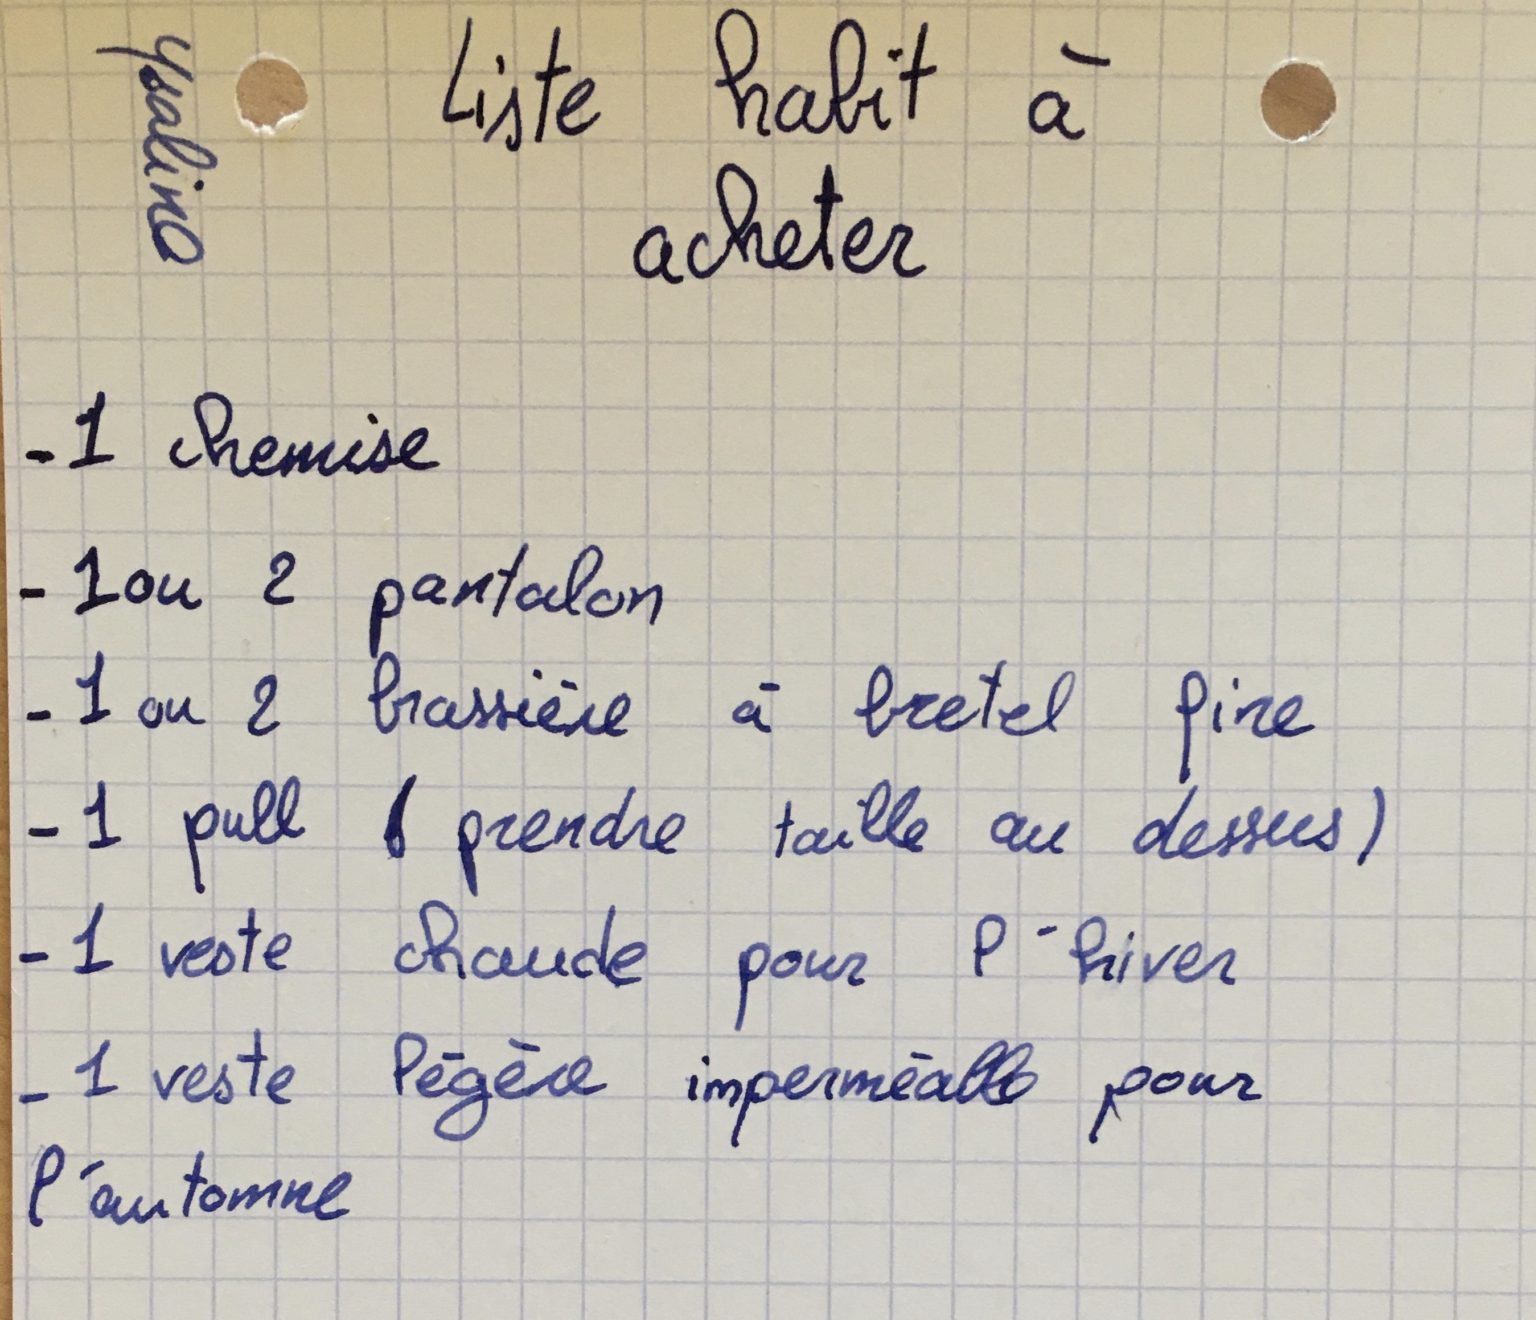 Ysaline
Liste habit à
acheter
- 1 chemise
- 1 ou 2 pantalon
- 1 ou 2 brassière à bretel fine
- 1 pull ( prendre taille au dessus)
- 1 veste chaude pour l'hiver
- 1 veste légère imperméable pour
l'automne